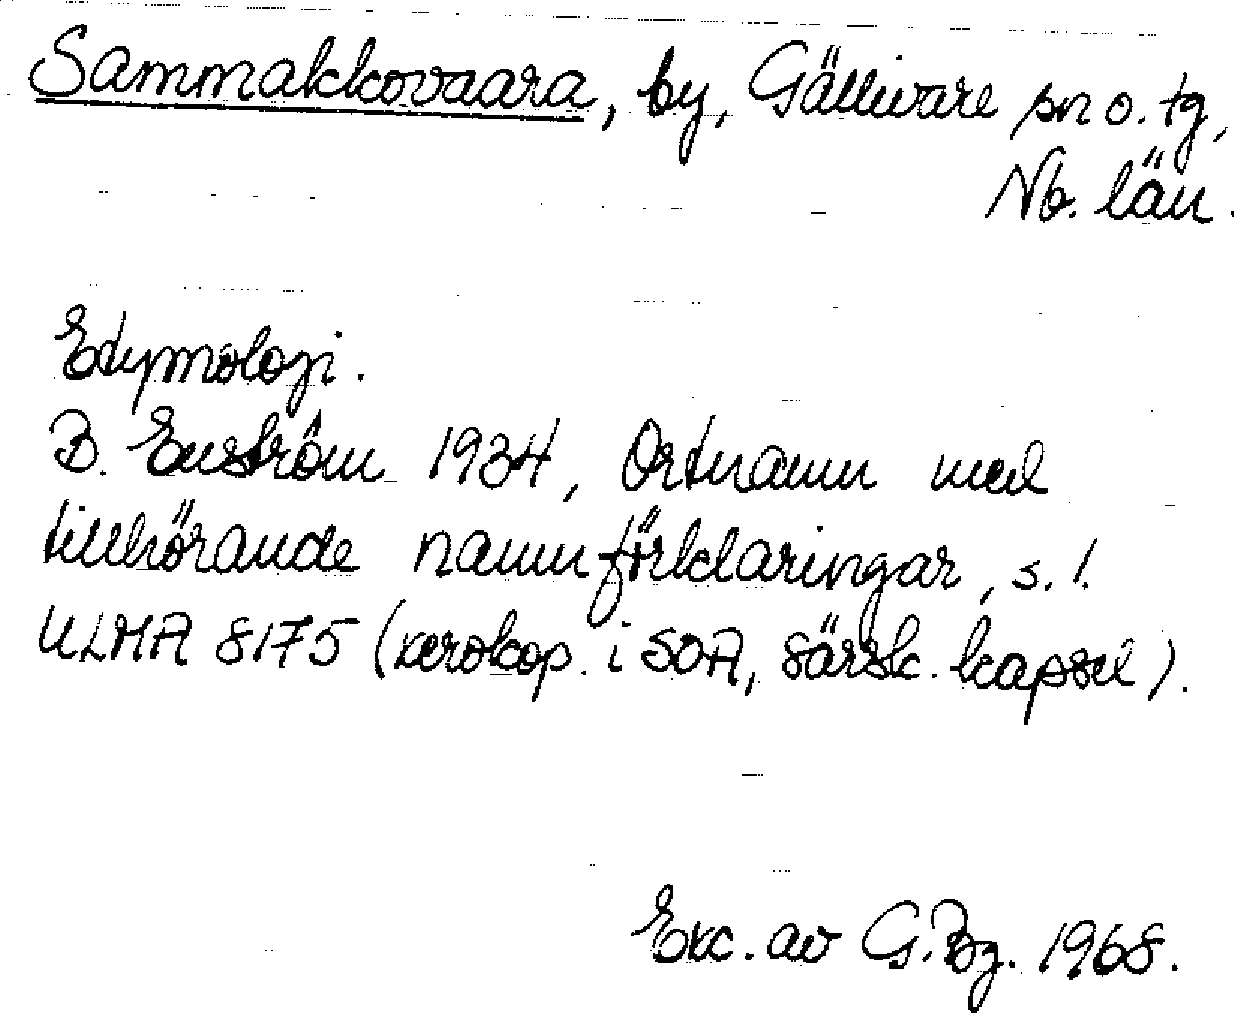 Sammakkovaara, by, Gällivare sn o. tg,
Nb. län.
Etymologi.
B. Enström 1934, Ortnamn med
tillhörande namnförklaringar, s. 1.
ULMA 8175 (xerokop. i SOA, särsk. kapsel).
Exc. av G.Bg. 1968.